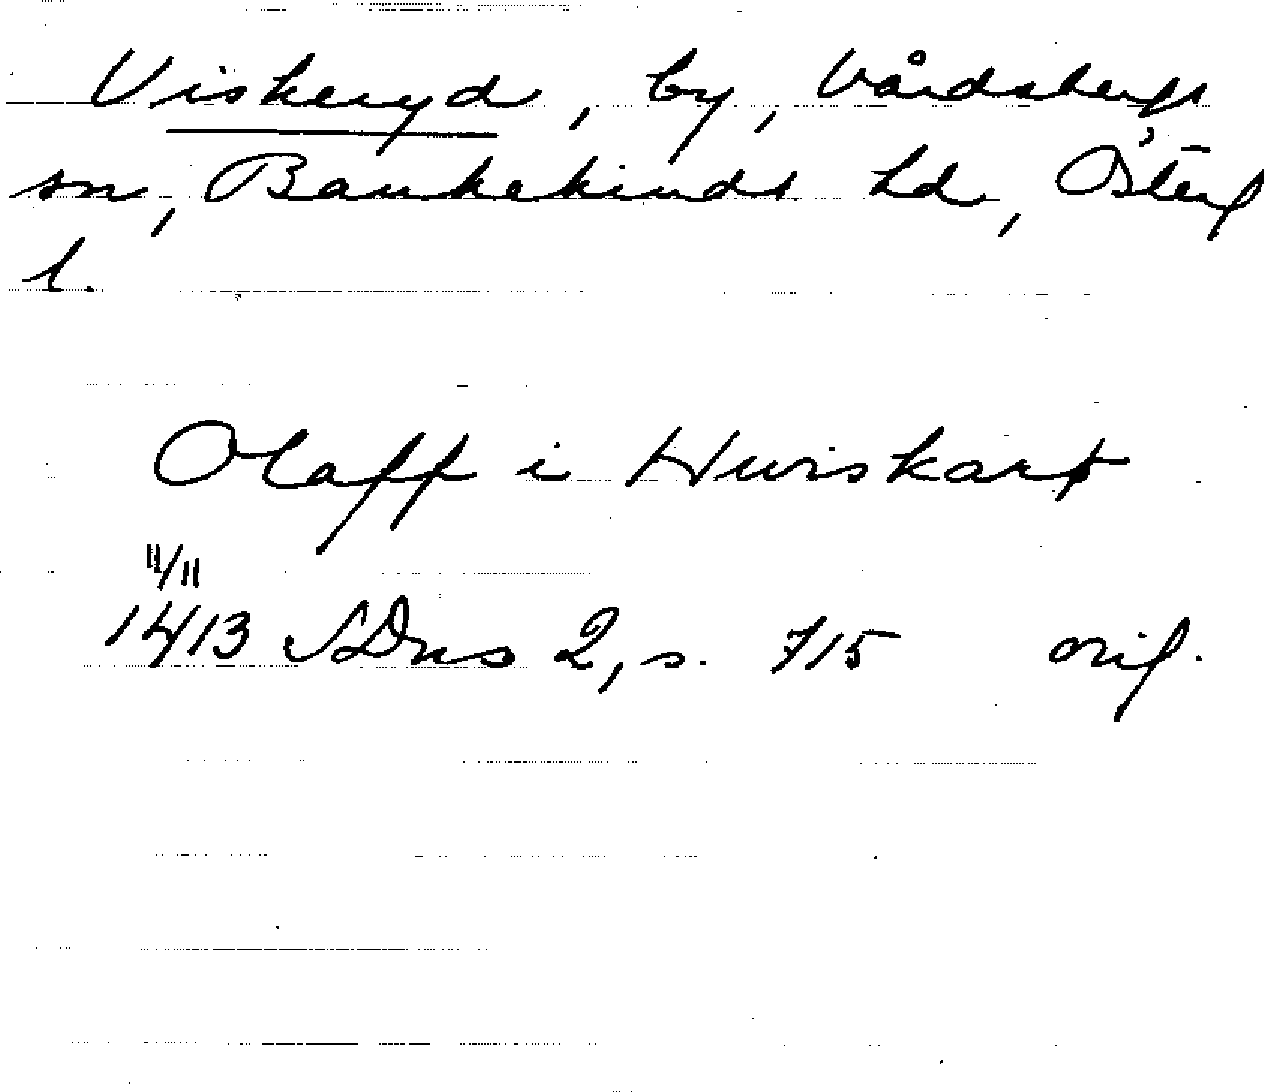 Viskeryd, by, Vårdsbergs
sn, Bankekinds hd, Österg
l.
Olaff i Hwiskarþ
11/11
1413 SDns 2, s. 715 orig.